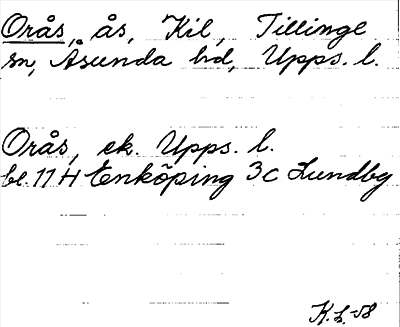 Orås, ås, Kil, Tillinge
sn, Åsunda hd, Upps. l.
Orås, ek. Upps. l.
bl. 11 H Enköping 3c Lundby
K.L.-58